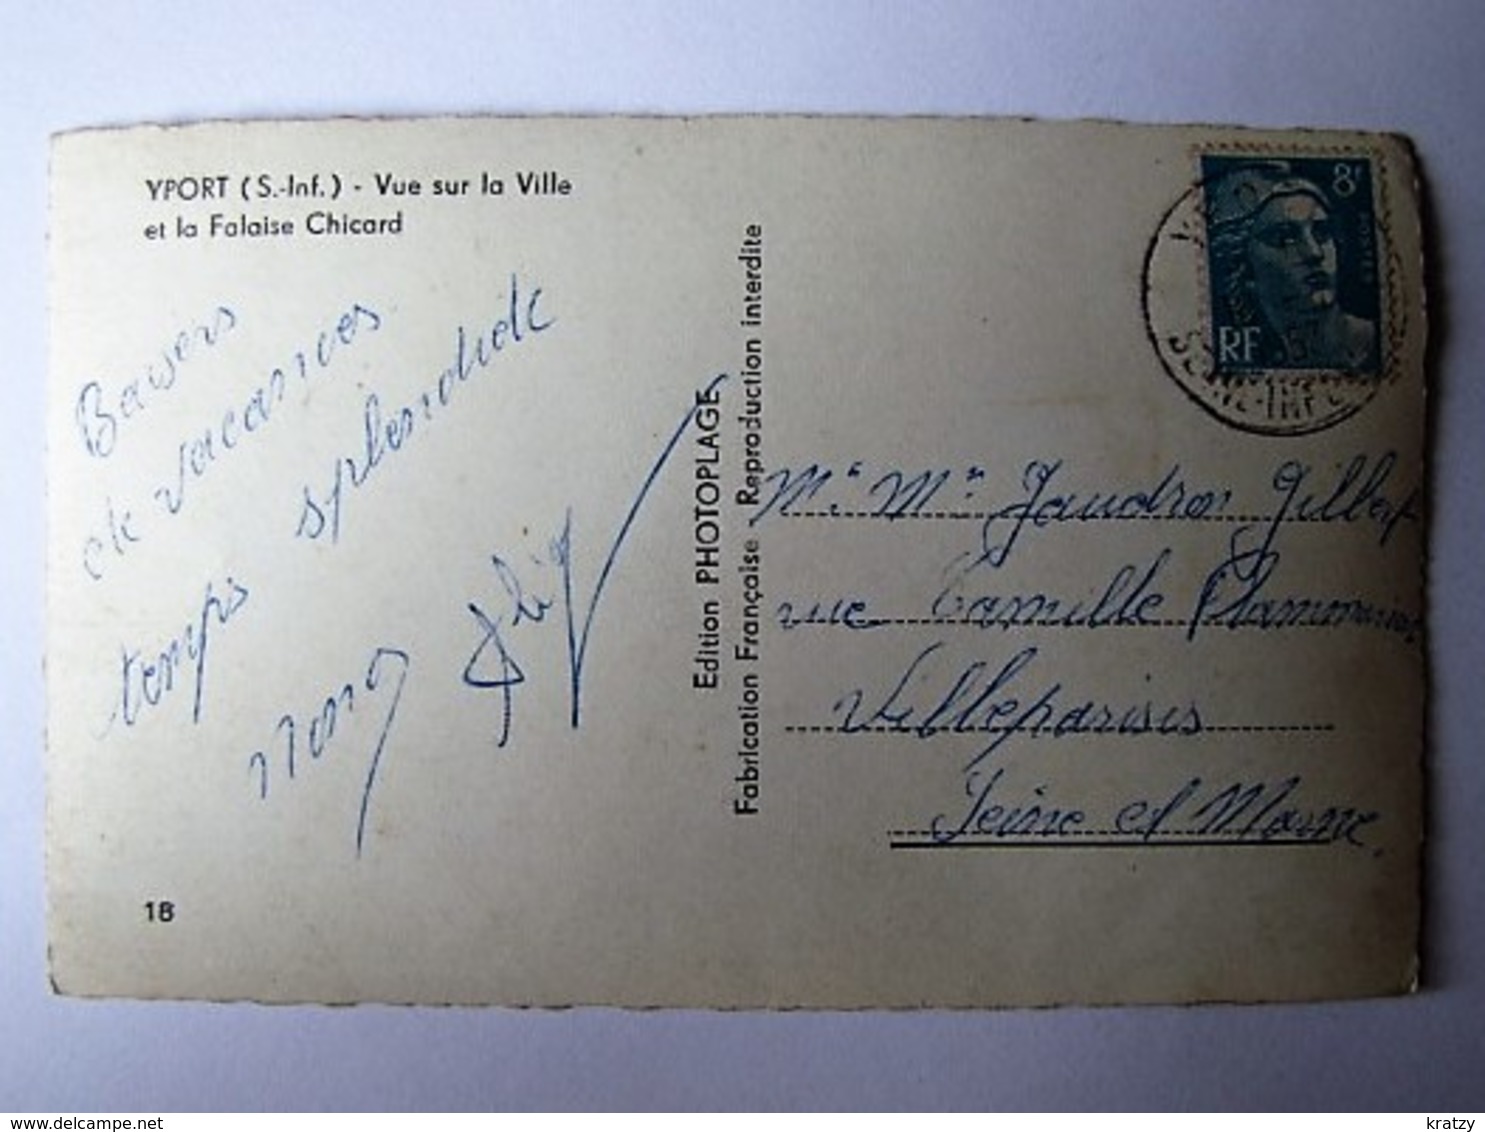 YPORT (S.-Inf.) - Vue sur la Ville
et la Falaise Chicard
Baisers
de vacances
temps splendide
18
Edition PHOTOPLAGE
Fabrication Française Reproduction interdite
8F
POSTES
RF
SEINE-INFRE
Mr Mme Jaudron Gilbert
rue Camille Flammarion
Villeparisis
Seine et Marne
delcampe.net
kratzy